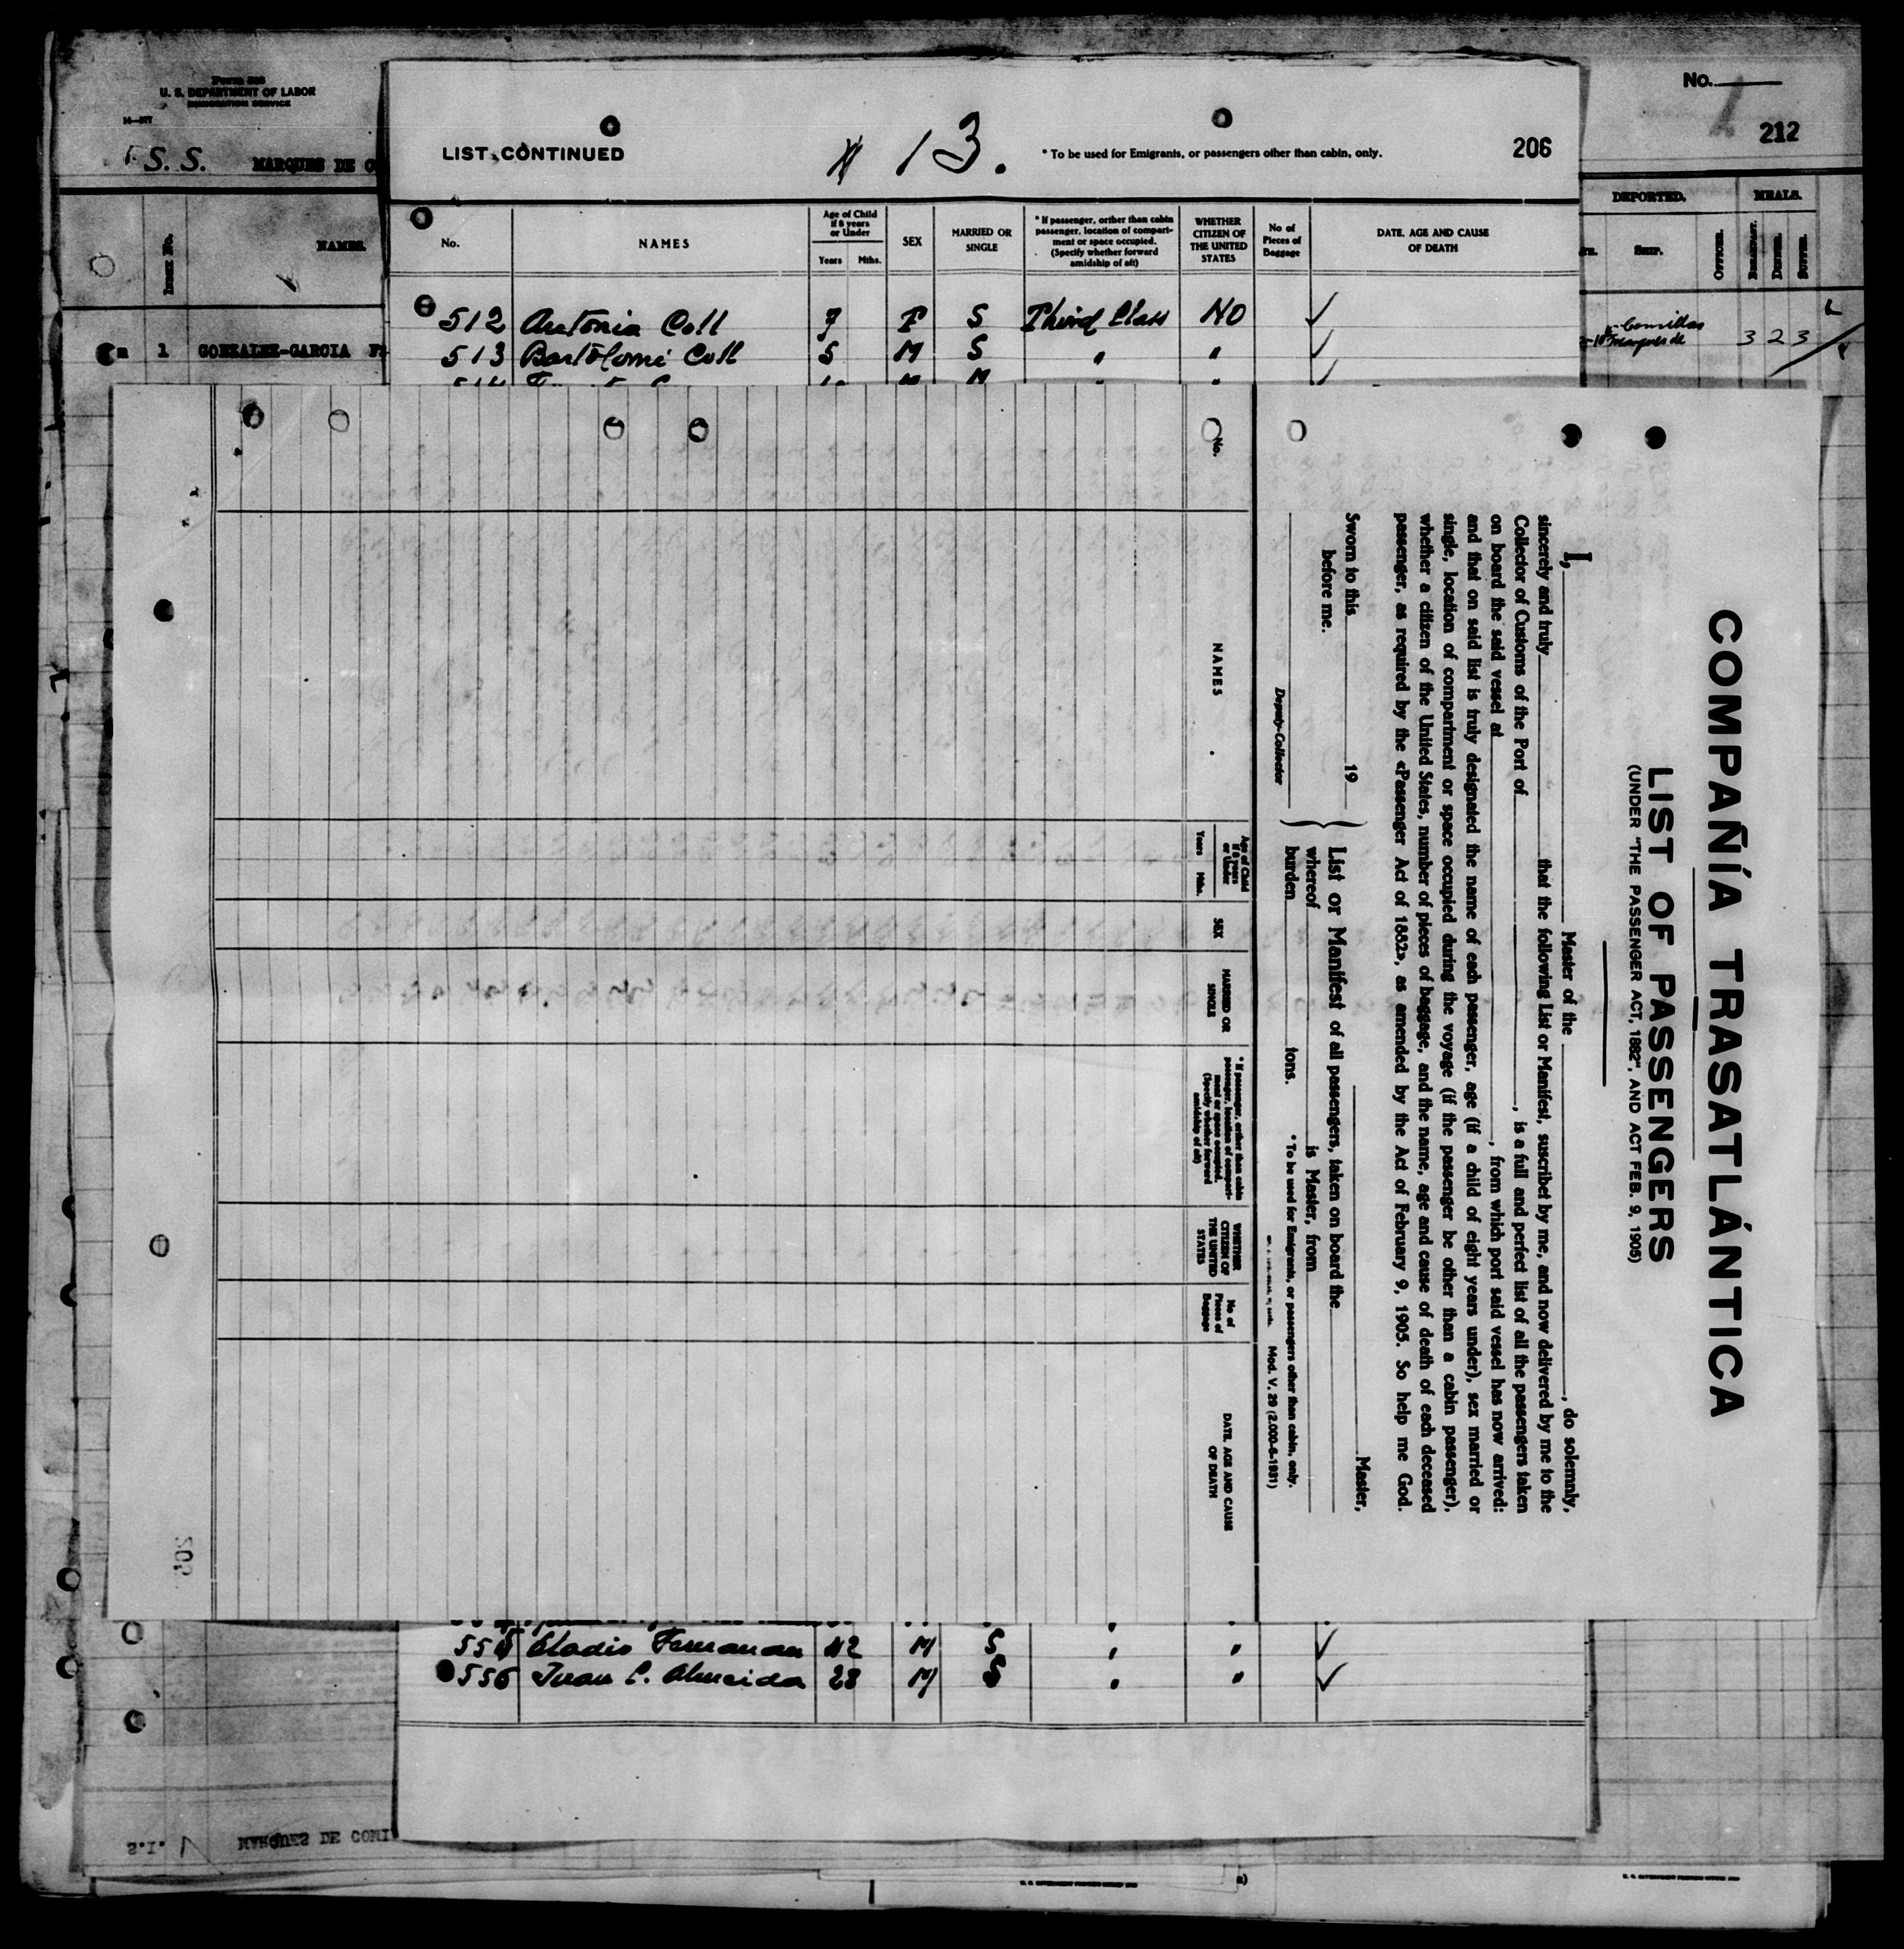 Form 528
U. S. DEPARTMENT OF LABOR
IMMIGRATION SERVICE
14-577
S. S. MARQUES DE C
No.
212
NAMES.
DEPORTED.
MEALS.
SHIP.
1 GONZALEZ-GARCIA F
Comillas
Marques de
3 2 3
LIST CONTINUED
# 13.
* To be used for Emigrants, or passengers other than cabin, only.
206
No.
NAMES
Age of Child
if 8 years
or Under
Years Mths.
SEX
MARRIED OR
SINGLE
* If passenger, orther than cabin
passenger, location of compart-
ment or space occupied.
(Specify whether forward
amidship of aft)
WHETHER
CITIZEN OF
THE UNITED
STATES
No of
Pieces of
Baggage
DATE, AGE AND CAUSE
OF DEATH
512 Antonia Coll 7 F S Third Class NO ✓
513 Bartolomé Coll 5 M S " " ✓
COMPAÑÍA TRASATLÁNTICA
LIST OF PASSENGERS
(UNDER "THE PASSENGER ACT, 1882", AND ACT FEB. 9, 1905)
I, Master of the , do solemnly,
sincerely and truly that the following List or Manifest, suscribet by me, and now delivered by me to the
Collector of Customs of the Port of , is a full and perfect list of all the passengers taken
on board the said vessel at , from which port said vessel has now arrived:
and that on said list is truly designated the name of each passenger, age (if a child of eight years under), sex married or
single, location of compartment or space occupied during the voyage (if the passenger be other than a cabin passenger),
whether a citizen of the United States, number of pieces of baggage, and the name, age and cause of death of each deceased
passenger, as required by the «Passenger Act of 1882», as amended by the Act of February 9, 1905. So help me God.
Master,
Sworn to this 19
before me.
Deputy-Collector
List or Manifest of all passengers, taken on board the
whereof is Master, from
burden tons.
* To be used for Emigrants, or passengers other than cabin, only.
Mod. V. 29 (2.000-6-1931)
No.
NAMES
Age of Child
if 8 years
or Under
Years Mths.
SEX
MARRIED OR
SINGLE
* If passenger, orther than cabin
passenger, location of compart-
ment or space occupied.
(Specify whether forward
amidship of aft)
WHETHER
CITIZEN OF
THE UNITED
STATES
No of
Pieces of
Baggage
DATE, AGE AND CAUSE
OF DEATH
555 Eladio 42 M S " " ✓
556 Juan C. Almeida 28 M S " " ✓
MARQUES DE COMI